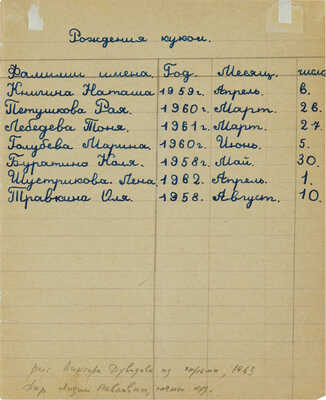 Рождения кукол.
Фамилии имена. Год. Месяц. число
Книгина Наташа 1959г. Апрель. 6.
Петушкова Рая. 1960г. Март. 28.
Лебедева Тоня. 1961г. Март. 27.
Голубева Марина. 1960г. Июнь. 5.
Буратино Коля. 1958г. Май. 30.
Шустрикова. Лена. 1962. Апрель. 1.
Травкина Оля. 1958. Август. 10.
Виктора из 1963
Дар Лидии